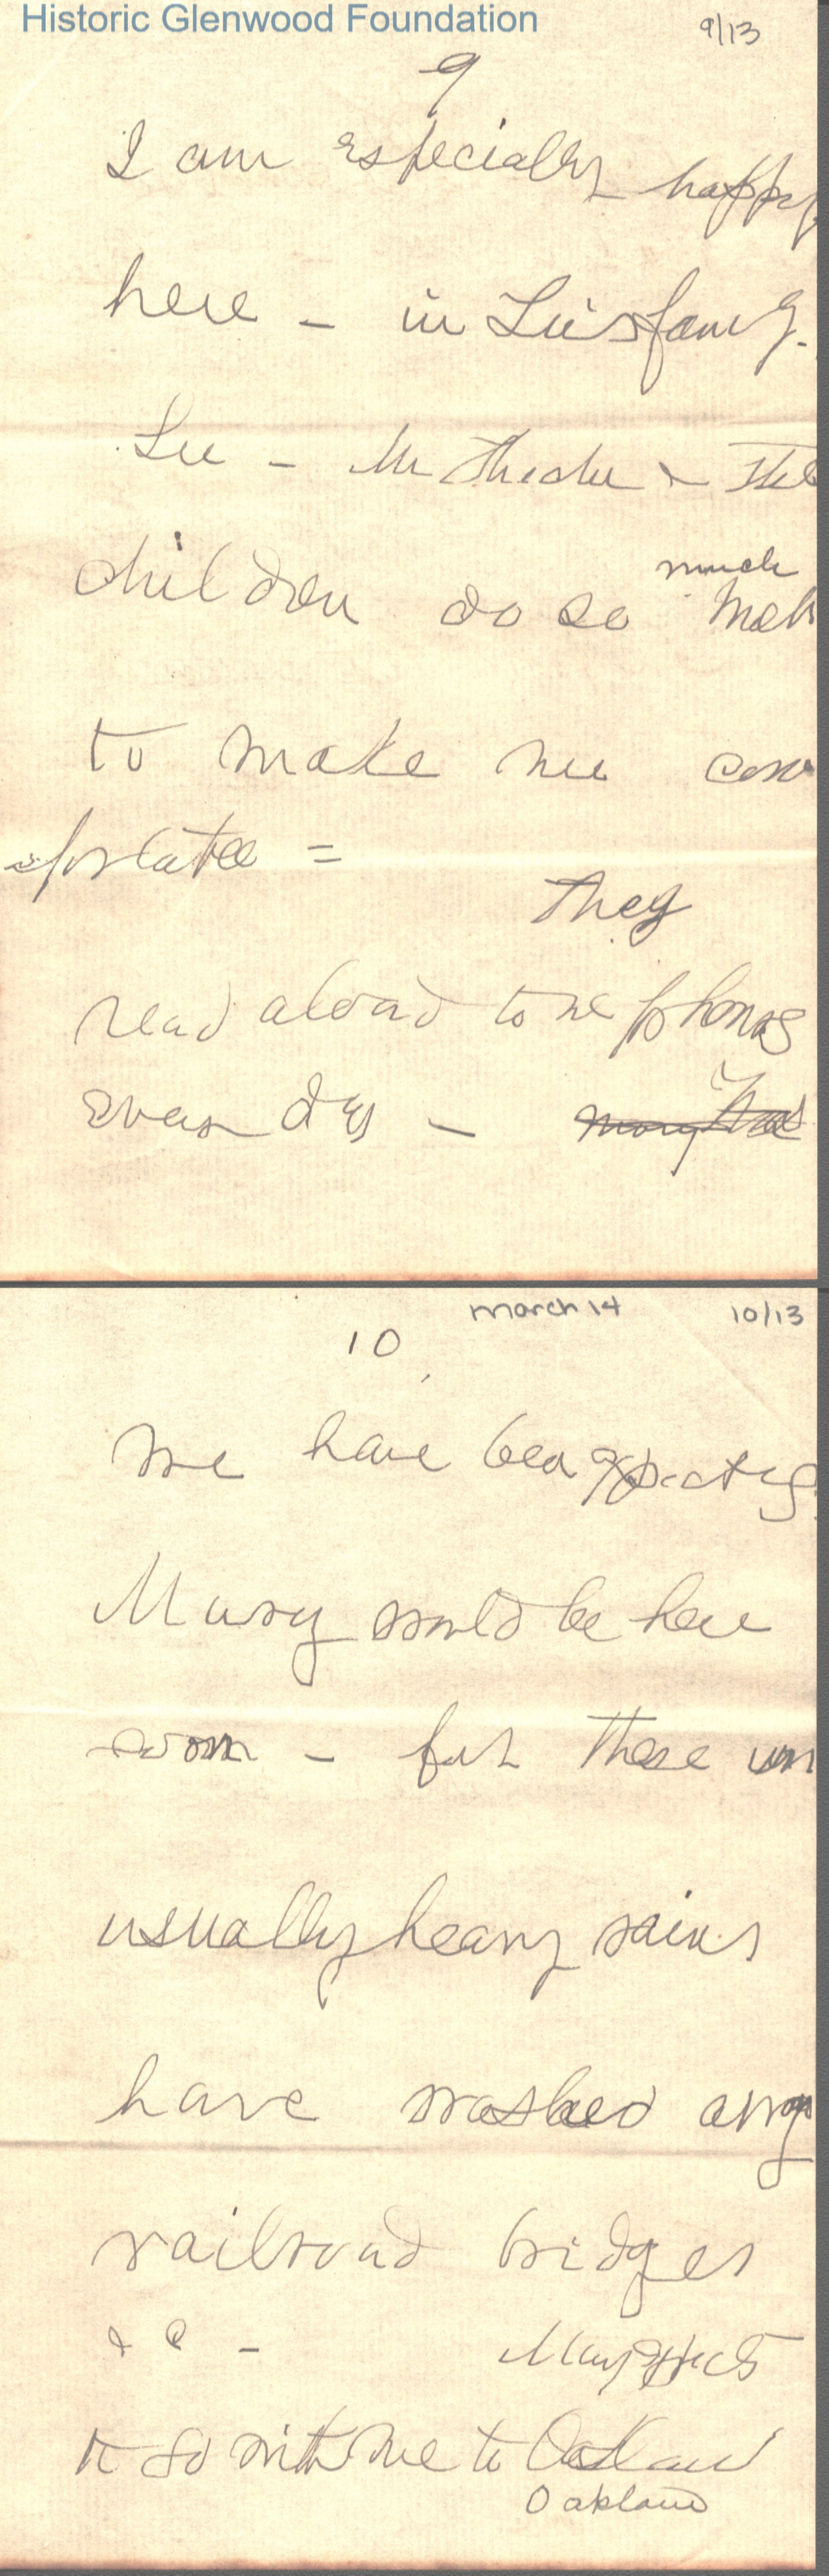 Historic Glenwood Foundation
9/13
9
I am especially happy
here - in Lu's family.
Lu - Mr Thesher & the
children do so much
to make me com
fortable =
they
read aloud to me for hours
every day -
March 14
10/13
10
We have been expecting
Mary would be here
soon - but these un
usually heavy rains
have washed away
railroad bridges
&c - Mary expects
to go with me to Oakland
Oakland